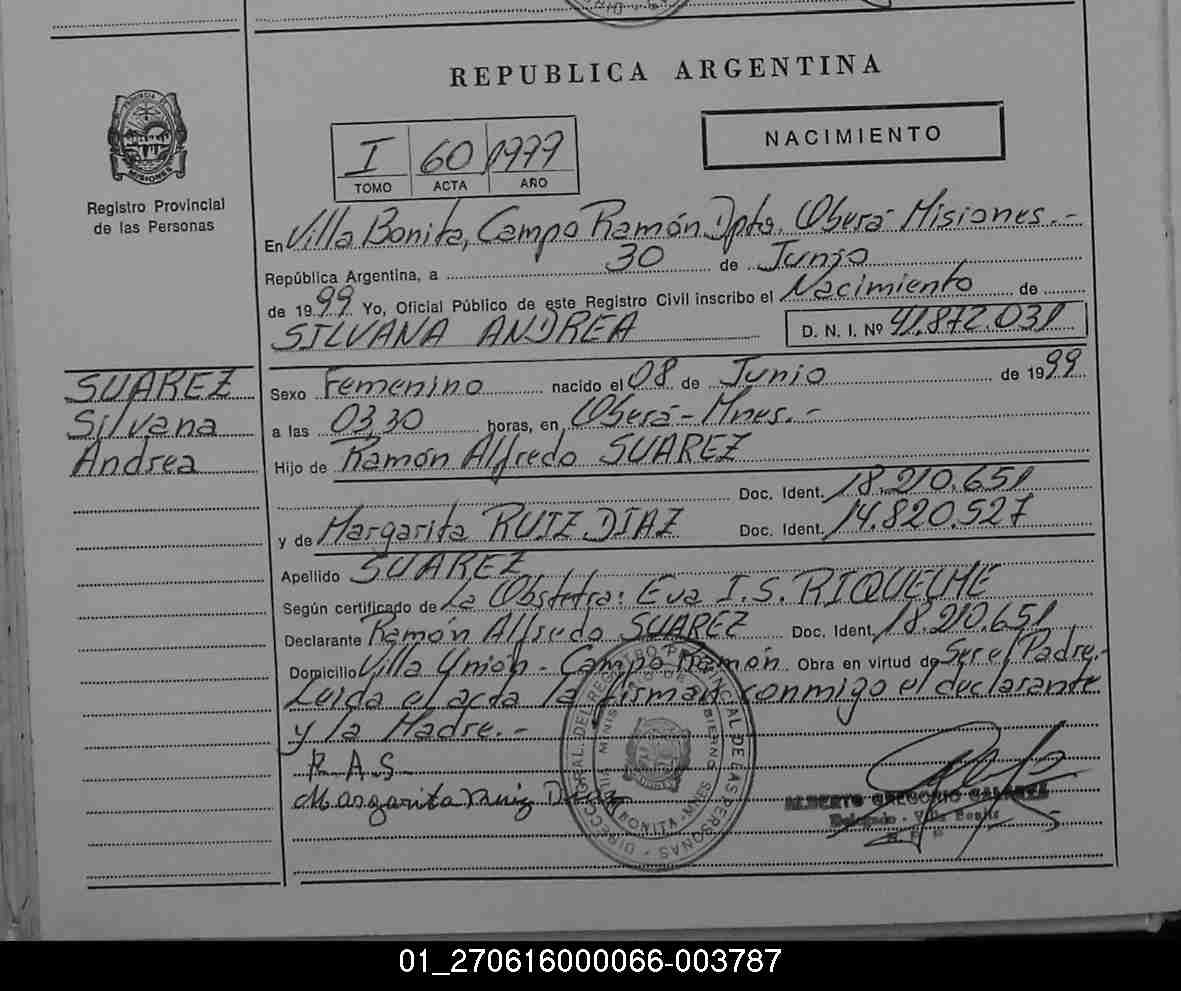 REPUBLICA ARGENTINA
PROVINCIA DE
MISIONES
Registro Provincial
de las Personas
NACIMIENTO
I 60 1999
TOMO ACTA AÑO
En Villa Bonita, Campo Ramón Dpto. Oberá Misiones.-
República Argentina, a 30 de Junio
de 1999 Yo, Oficial Público de este Registro Civil inscribo el Nacimiento de
SILVANA ANDREA D. N. I. Nº 41.872.031
SUAREZ
Silvana
Andrea
Sexo Femenino nacido el 08 de Junio de 1999
a las 03,30 horas, en Oberá-Mnes.-
Hijo de Ramón Alfredo SUAREZ
Doc. Ident. 18.210.651
y de Margarita RUIZ DIAZ Doc. Ident. 14.820.527
Apellido SUAREZ
Según certificado de La Obstetra: Eva I.S. RIQUELME
Declarante Ramón Alfredo SUAREZ Doc. Ident. 18.210.651
Domicilio Villa Unión - Campo Ramón Obra en virtud de Ser el Padre.-
Leida el acta la firman conmigo el declarante
y la Madre.-
R.A.S
Margarita Ruiz Diaz
DIRECCION GRAL. DEL REGISTRO PROVINCIAL DE LAS PERSONAS
MINISTERIO DE GOBIERNO
BONITA - MNES
ALBERTO GREGORIO
Delegado - Villa Bonita
01_270616000066-003787